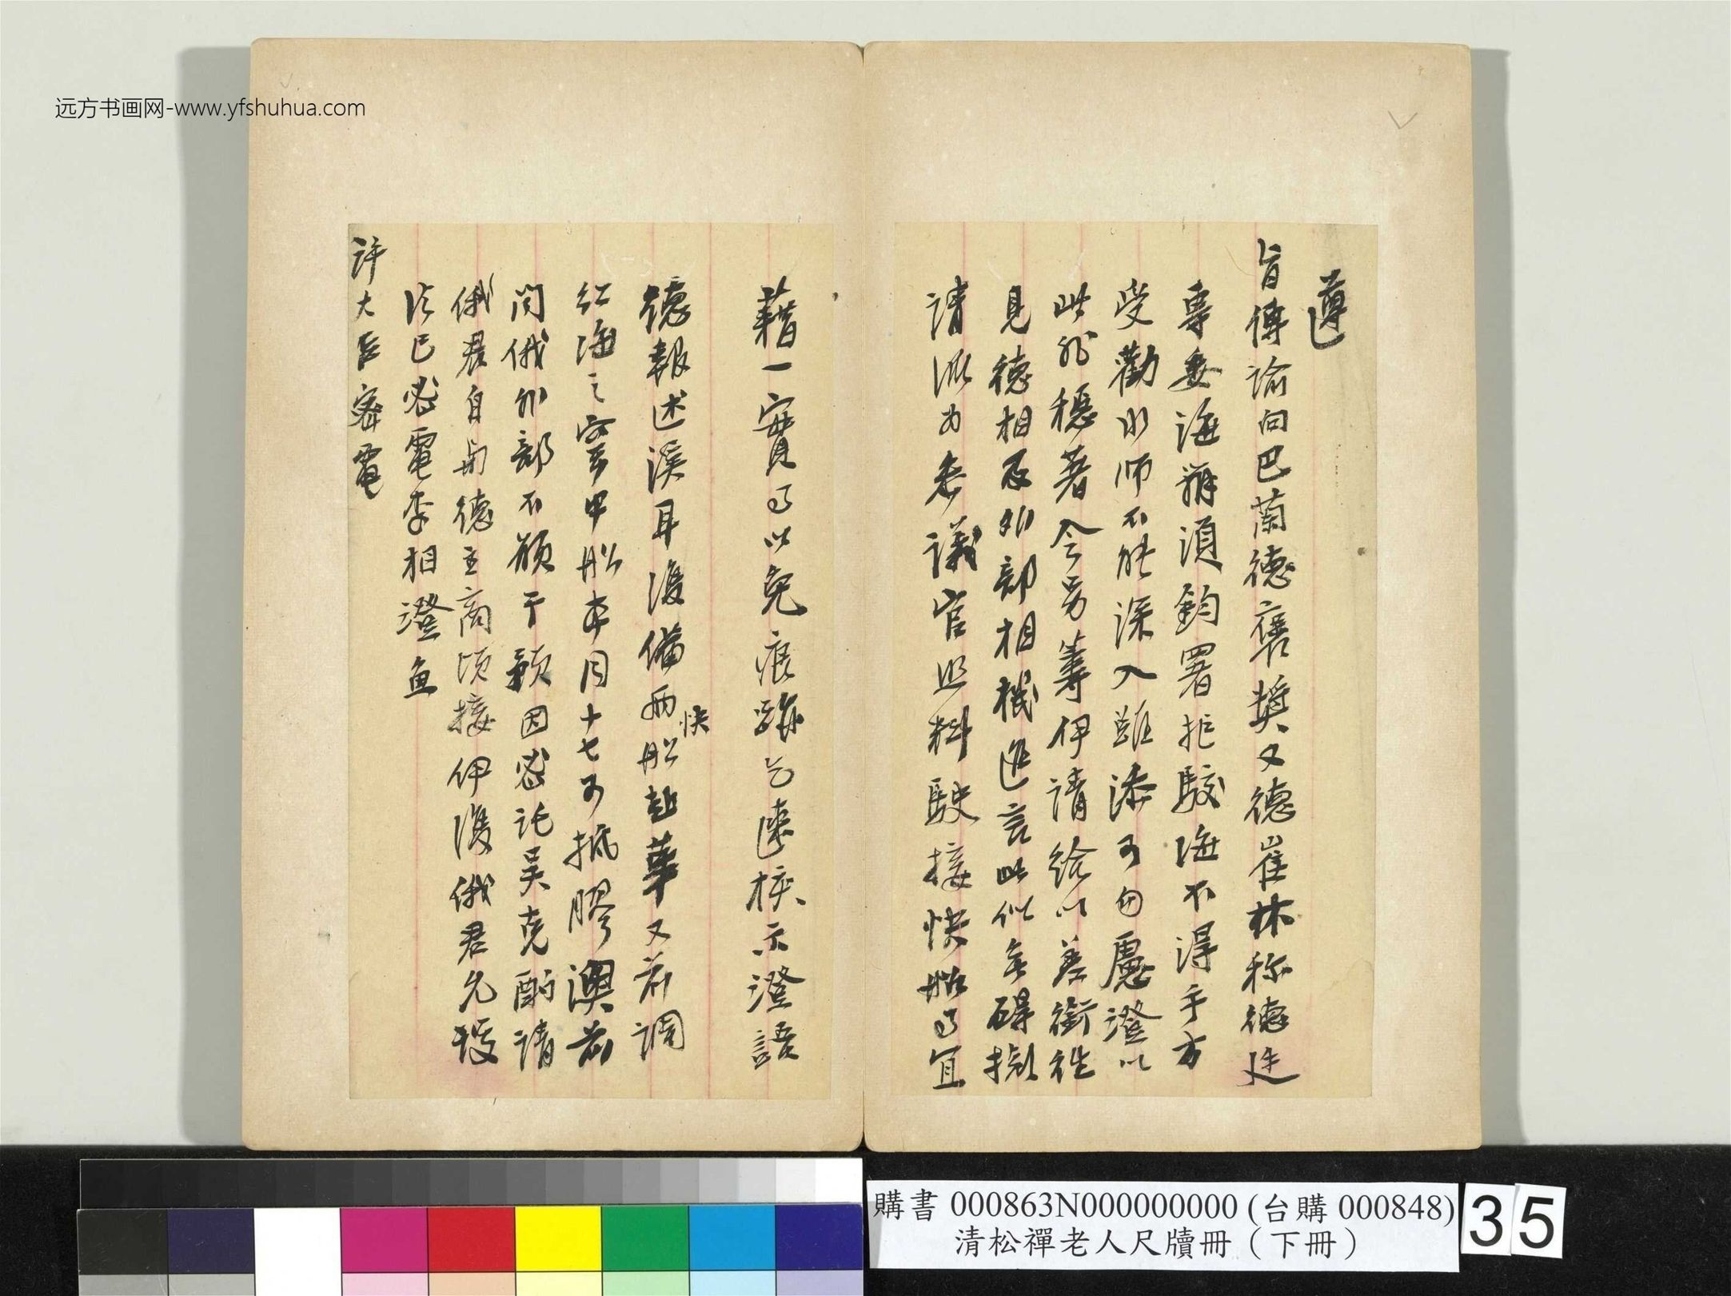 遵
旨傳諭向巴蘭德褒獎又德崔林稱德廷
專委海辦須鈞署拒駁海不得手方
受勸水師不能深入雖添可勿慮澄以
此殊穩著今另籌伊請給以差銜往
見德相及外部相機進言此似無礙擬
請派為參議官照料駛接快船事宜
藉一實事以免痕跡乞速核示澄語
德報述溪耳復備兩快船赴華又前調
紅海之甲船本月十七可抵膠澳前
問俄外部不願干預因密託吳克酌請
俄君自與德主商頃接伊復俄君允
已密電李相澄魚
許大臣密電
远方书画网-www.yfshuhua.com
購書 000863N000000000 (台購 000848)
清松禪老人尺牘冊（下冊）
35